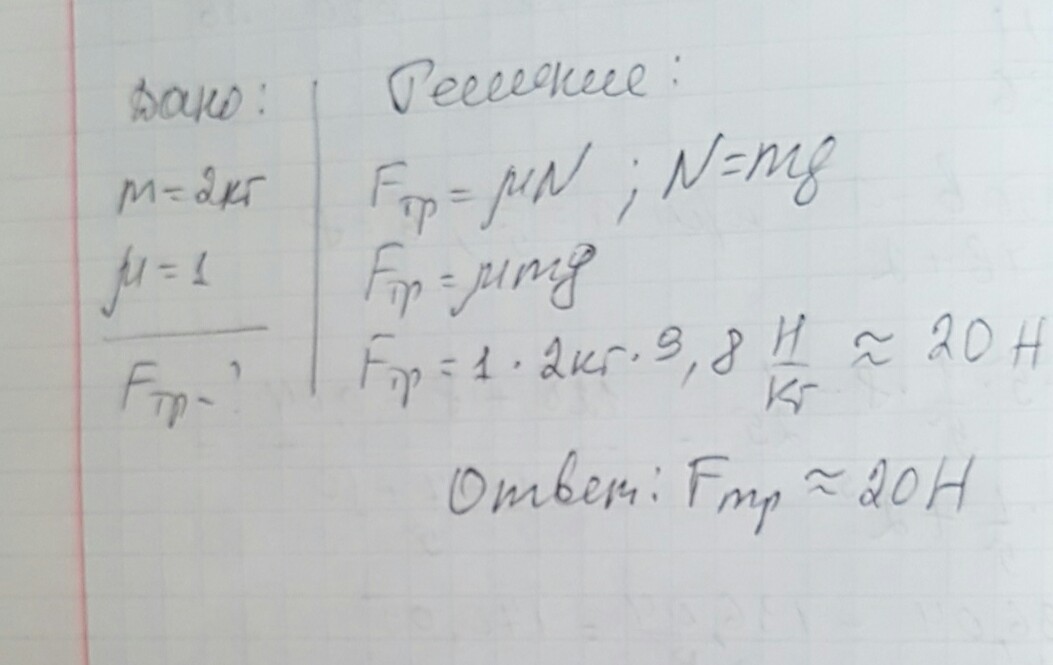 Дано:
m=2кг
μ=1
Fтр-?
Решение:
Fтр=μN ; N=mg
Fтр=μmg
Fтр=1·2кг·9,8 Н/кг ≈ 20 Н
Ответ: Fтр ≈ 20Н